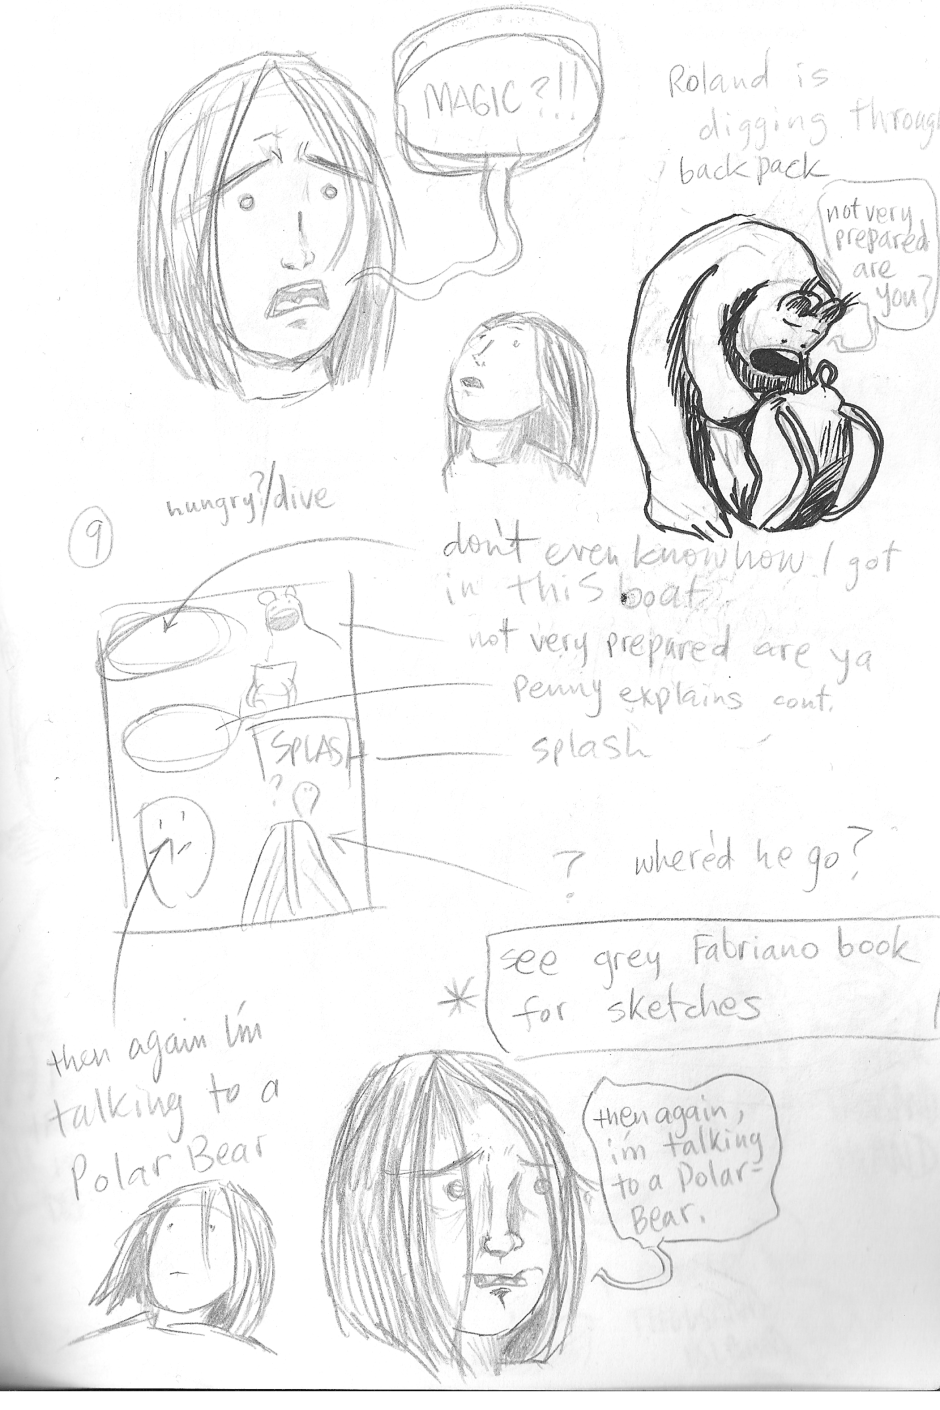 MAGIC?!!
Roland is
digging through
backpack
not very
prepared
are
you?
hungry?/dive
9
don't even know how I got
in this boat.
not very prepared are ya
Penny explains cont.
splash
SPLASH
?
? where'd he go?
see grey Fabriano book
* for sketches
then again I'm
talking to a
Polar Bear
then again,
i'm talking
to a Polar-
Bear.